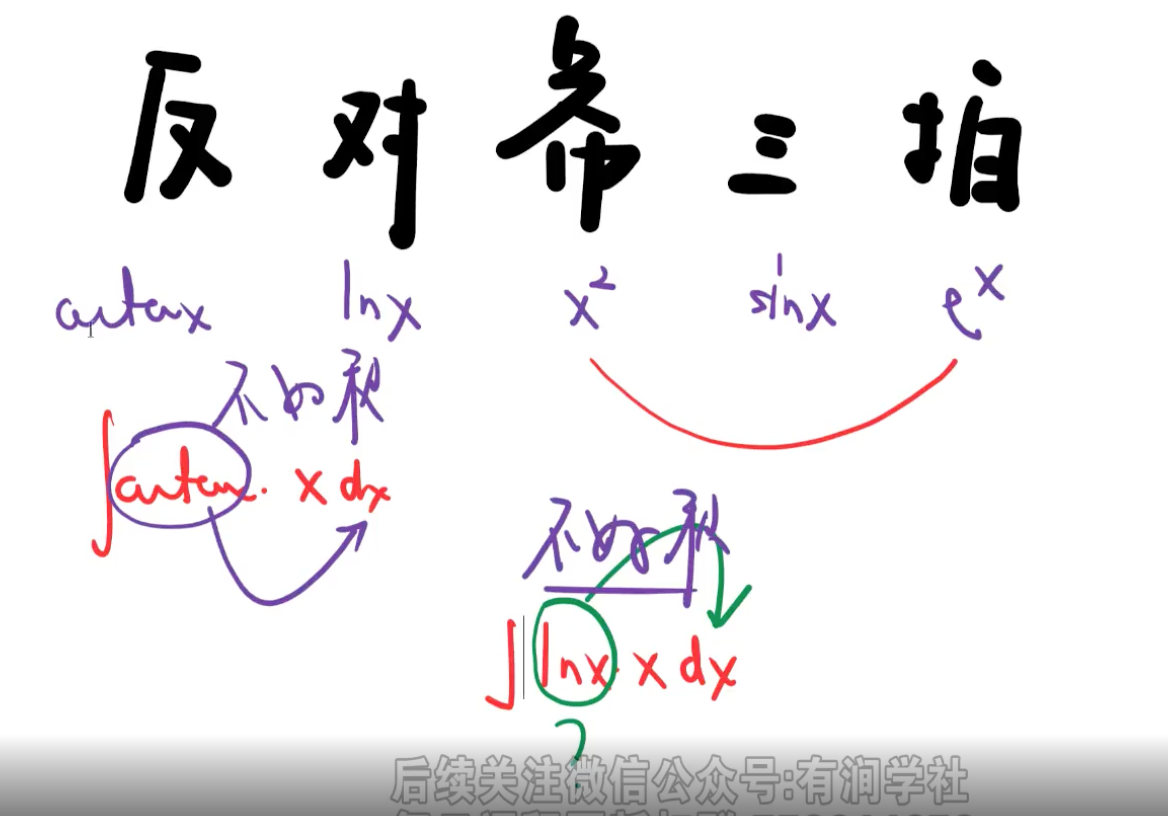 反 对 幂 三 指
arctanx lnx x² sinx eˣ
不好积
∫arctanx · x dx
不好积
∫lnx · x dx
?
后续关注微信公众号:有涧学社